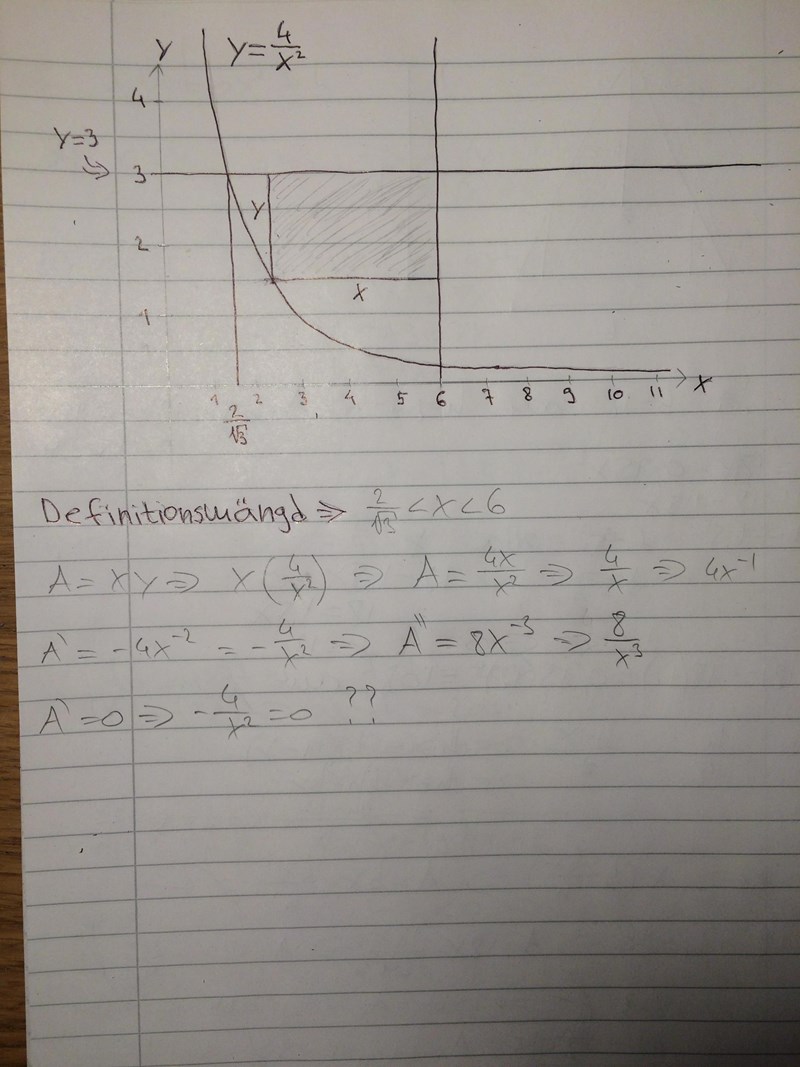 Y
Y = 4/x²
4
Y=3
3
Y
2
X
1
1 2 3 4 5 6 7 8 9 10 11 X
2/√3
Definitionsmängd ⇒ 2/√3 < x < 6
A = XY ⇒ X(4/x²) ⇒ A = 4x/x² ⇒ 4/x ⇒ 4x⁻¹
A' = -4x⁻² = -4/x² ⇒ A'' = 8x⁻³ ⇒ 8/x³
A' = 0 ⇒ -4/x² = 0 ??